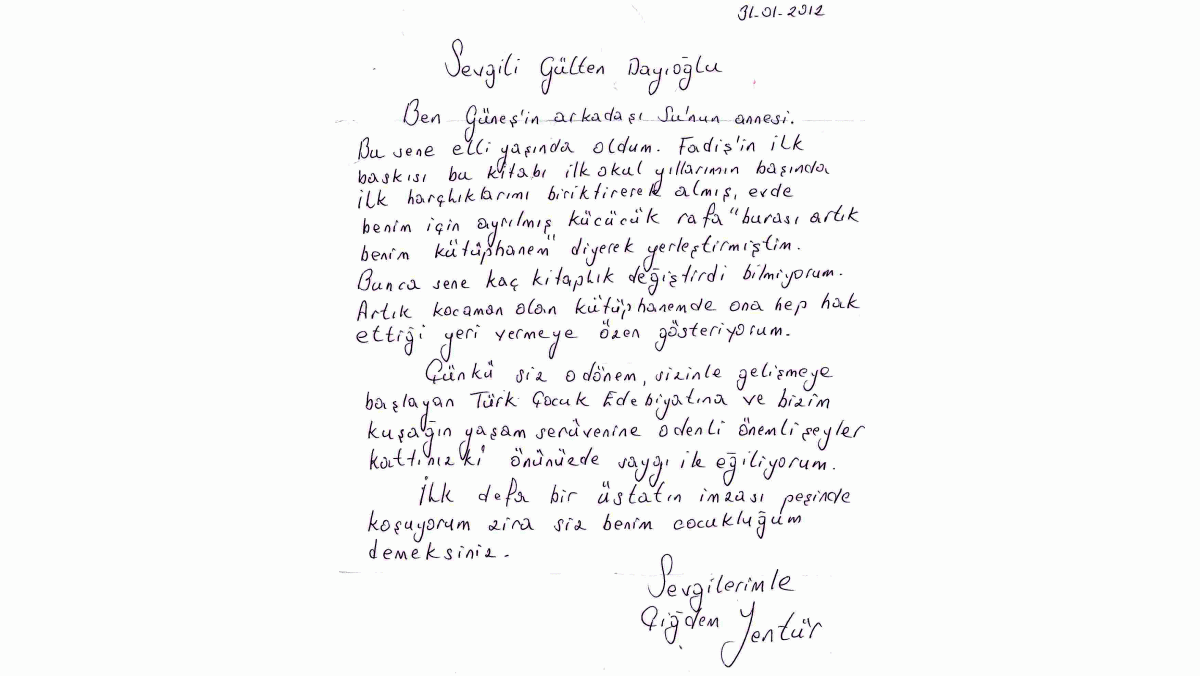 31-01-2012
Sevgili Gülten Dayıoğlu
Ben Güneş'in arkadaşı Su'nun annesi.
Bu sene elli yaşında oldum. Fadiş'in ilk
baskısı bu kitabı ilk okul yıllarımın başında
ilk harçlıklarımı biriktirerek almış, evde
benim için ayrılmış küçücük rafa "burası artık
benim kütüphanem" diyerek yerleştirmiştim.
Bunca sene kaç kitaplık değiştirdi bilmiyorum.
Artık kocaman olan kütüphanemde ona hep hak
ettiği yeri vermeye özen gösteriyorum.
Çünkü siz o dönem, sizinle gelişmeye
başlayan Türk Çocuk Edebiyatına ve bizim
kuşağın yaşam serüvenine o denli önemli şeyler
kattınız ki önünüzde saygı ile eğiliyorum.
İlk defa bir üstatın imzası peşinde
koşuyorum zira siz benim çocukluğum
demeksiniz.
Sevgilerimle
Çiğdem Yentür